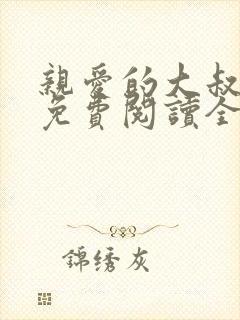 親愛的大叔
免費閱讀全
錦绣灰